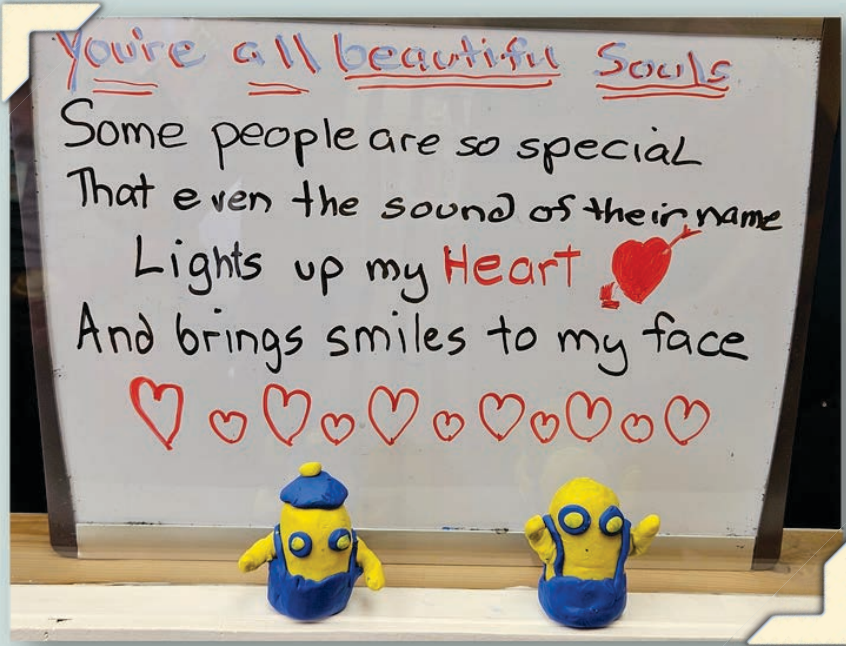 You're all beautiful Souls
Some people are so special
That even the sound of their name
Lights up my Heart
And brings smiles to my face